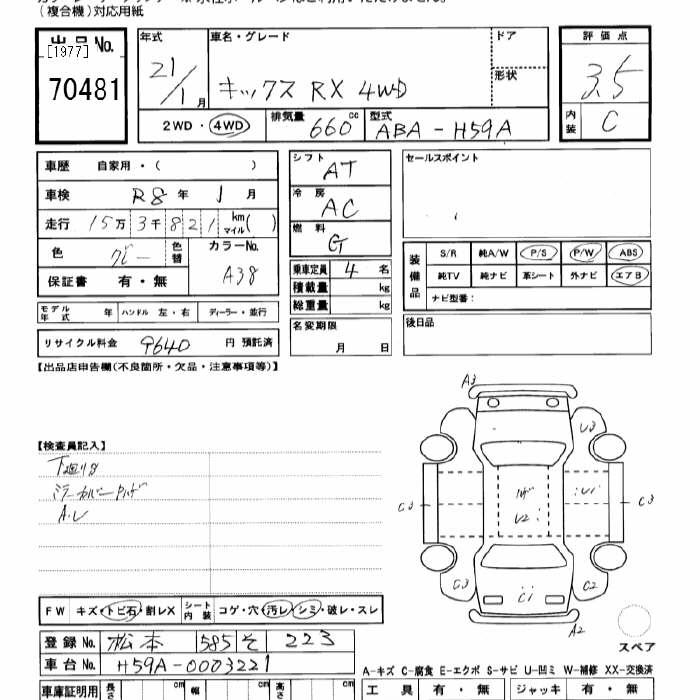 (複合機)対応用紙
出品No. [1977] 70481
年式 21/1月
車名・グレード キックス RX 4WD
ドア
形状
2WD・4WD
排気量 660cc
型式 ABA-H59A
評価点 3.5
内装 C
車歴 自家用・( )
車検 R8年 1月
走行 15万3千821 km マイル( )
色 グレー 色替
カラーNo. A38
保証書 有・無
モデル年式 年 ハンドル 左・右 ディーラー・並行
リサイクル料金 9640 円 預託済
シフト AT
冷房 AC
燃料 G
乗車定員 4 名
積載量 kg
総重量 kg
名変期限 月 日
セールスポイント
装備品 S/R 純A/W P/S P/W ABS
純TV 純ナビ 革シート 外ナビ エアB
ナビ型番:
後日品
【出品店申告欄(不良箇所・欠品・注意事項等)】
【検査員記入】
下廻りS
ミラーカバー
A.U
A3
U3
C3
U2
U1
C3
C3
C2
C1
A2
スペア
FW キズ・トビ石・割レX シート内装 コゲ・穴・汚レ・シミ・破レ・スレ
登録No. 松本 585 そ 223
車台No. H59A-0003221
車庫証明用 長さ cm 幅 cm 高さ cm
A-キズ C-腐食 E-エクボ S-サビ U-凹ミ W-補修 XX-交換済
工具 有・無 ジャッキ 有・無